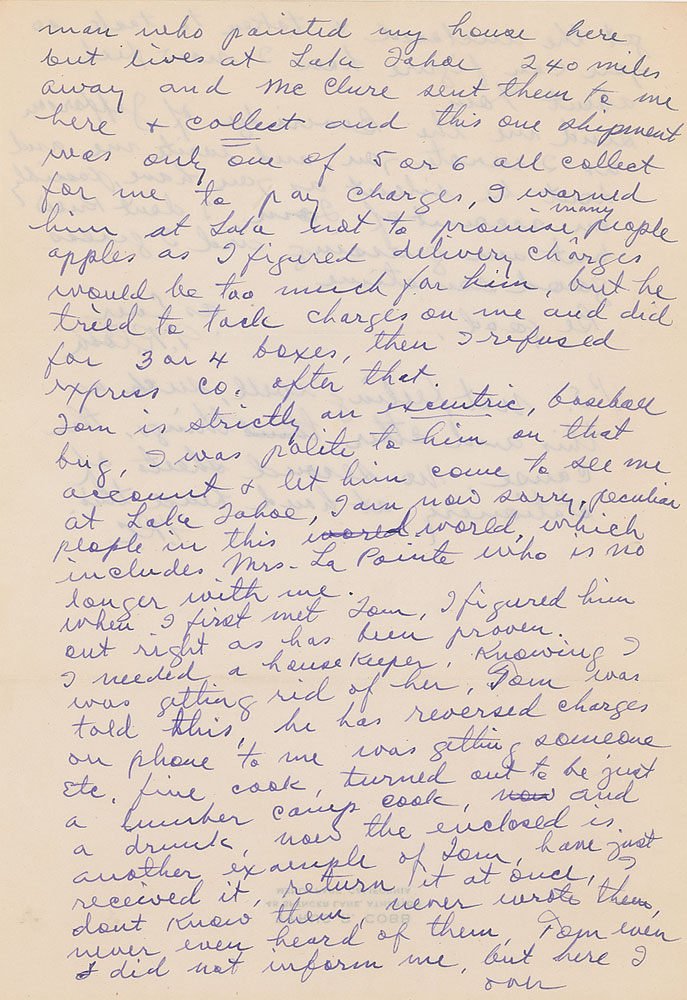 man who painted my house here
but lives at Lake Tahoe 240 miles
away and McClure sent them to me
here & collect and this one shipment
was only one of 5 or 6 all collect
for me to pay charges, I warned
him at Lake not to promise many people
apples as I figured delivery charges
would be too much for him, but he
tried to tack charges on me and did
for 3 or 4 boxes, then I refused
express co. after that.
Tom is strictly an excentric, baseball
bug, I was polite to him on that
account & let him come to see me
at Lake Tahoe, I am now sorry, peculiar
people in this world, which
includes Mrs- La Pointe who is no
longer with me.
when I first met Tom, I figured him
out right as has been proven.
I needed a housekeeper, Knowing I
was getting rid of her, Tom was
told this, he has reversed charges
on phone to me was getting someone
etc. fine cook, turned out to be just
a lumber camp cook, now and
a drunk, now the enclosed is
another example of Tom, have just
received it, return it at once, I
dont Know them, never wrote them,
never even heard of them, Tom even
did not inform me, but here I
over
COBB